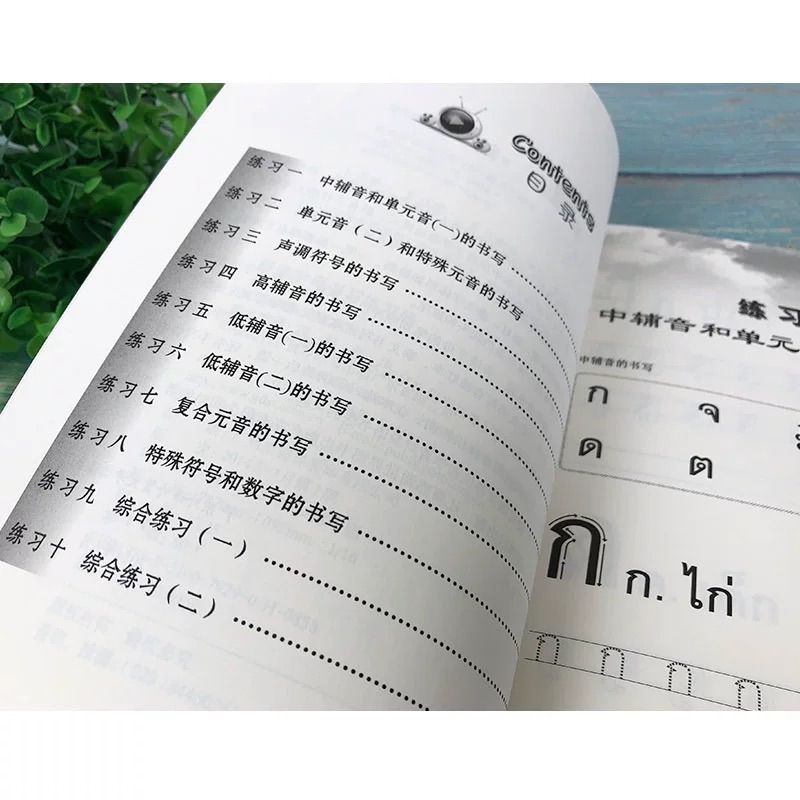 Contents
目录
练习一 中辅音和单元音(一)的书写
练习二 单元音（二）和特殊元音的书写
练习三 声调符号的书写
练习四 高辅音的书写
练习五 低辅音(一)的书写
练习六 低辅音(二)的书写
练习七 复合元音的书写
练习八 特殊符号和数字的书写
练习九 综合练习（一）
练习十 综合练习（二）
练习
中辅音和单元
中辅音的书写
ก จ
ด ต
ก ก. ไก่
ก ก ก ก